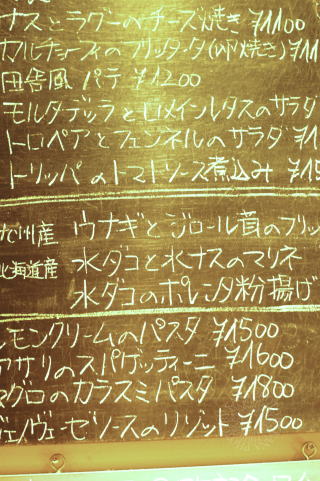 ナスとラグーのチーズ焼き ¥1100
カルチョーフィのフリッタータ(卵焼き) ¥11
田舎風 パテ ¥1200
モルタデッラとロメインレタスのサラダ
トロペアとフェンネルのサラダ ¥1
トリッパのトマトソース煮込み ¥15
九州産 ウナギとジロール茸のフリッ
北海道産 水ダコと水ナスのマリネ
水ダコのポレンタ粉揚げ
レモンクリームのパスタ ¥1500
アサリのスパゲッティーニ ¥1600
マグロのカラスミパスタ ¥1800
ジェノヴェーゼソースのリゾット ¥1500